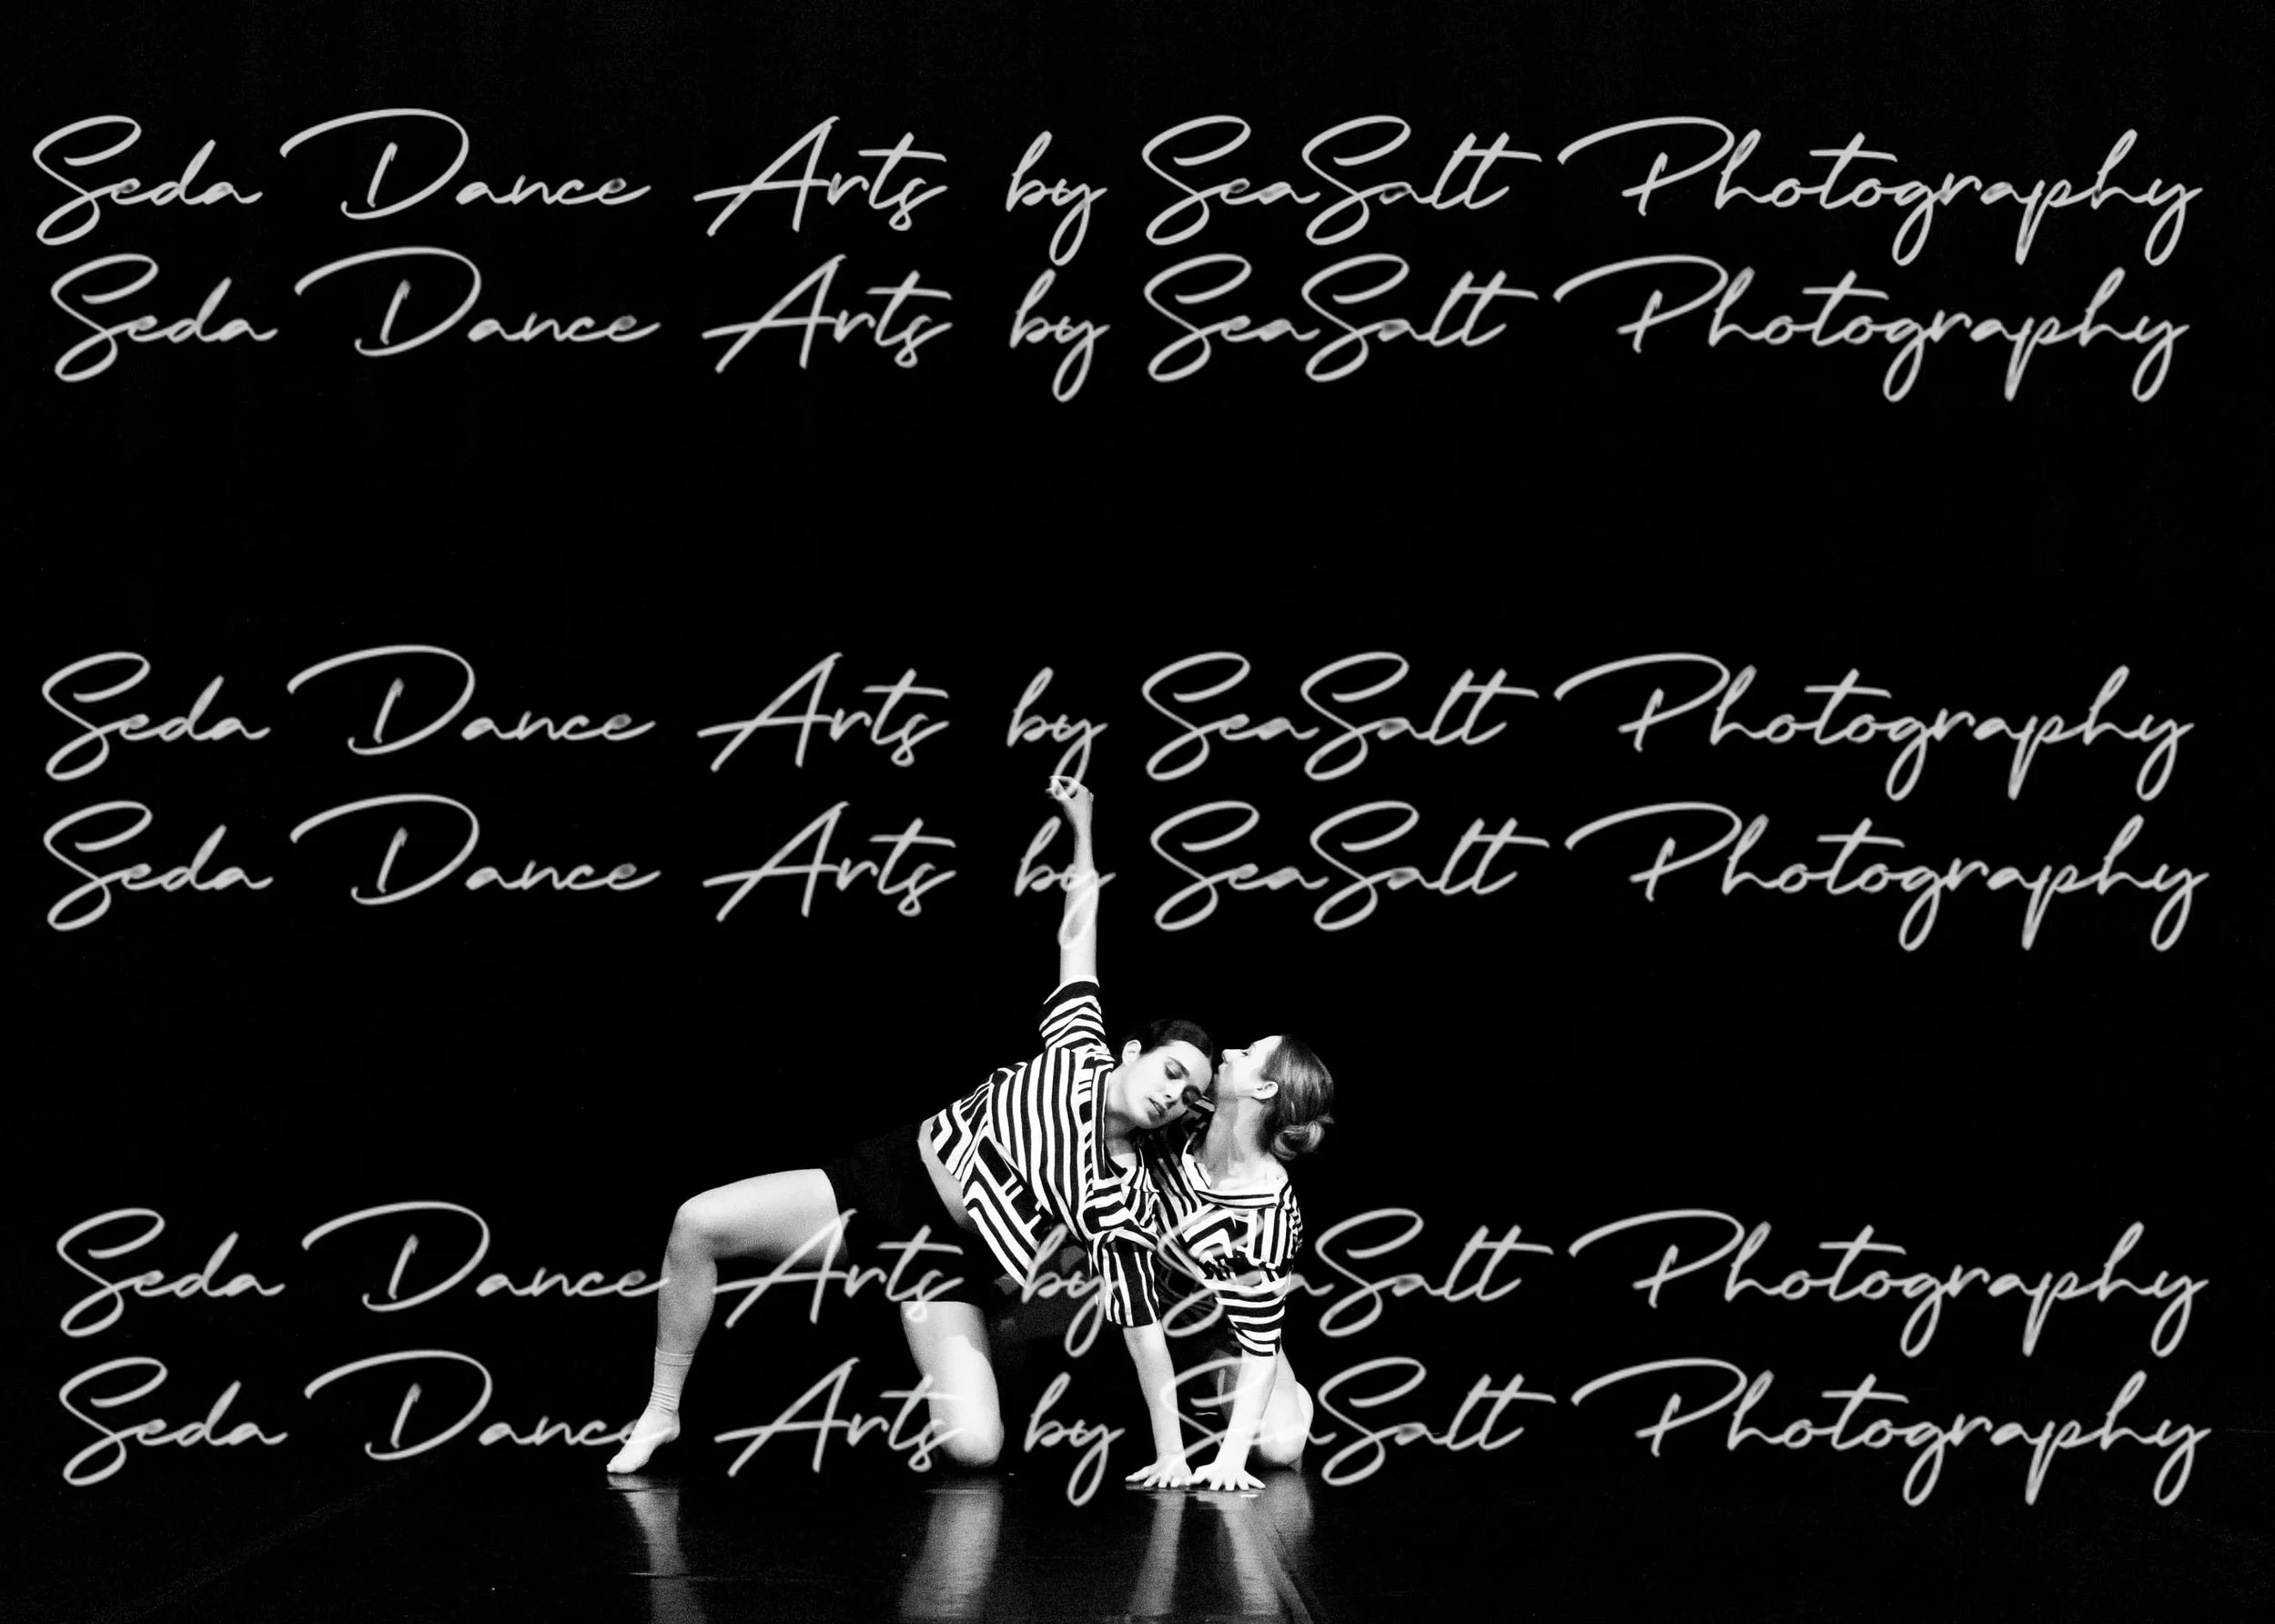 Seda Dance Arts by SeaSalt Photography
Seda Dance Arts by SeaSalt Photography
Seda Dance Arts by SeaSalt Photography
Seda Dance Arts by SeaSalt Photography
Seda Dance Arts by SeaSalt Photography
Seda Dance Arts by SeaSalt Photography